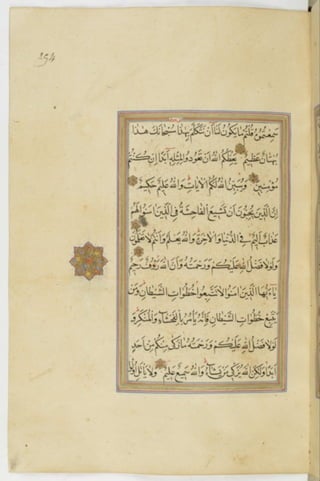 سمعتموه قلتم ما يكون لنا أن نتكلم بهذا سبحانك هذا
بهتان عظيم يعظكم الله أن تعودوا لمثله أبدا إن كنتم
مؤمنين ويبين الله لكم الآيات والله عليم حكيم
إن الذين يحبون أن تشيع الفاحشة في الذين آمنوا لهم
عذاب أليم في الدنيا والآخرة والله يعلم وأنتم لا تعلمون
ولولا فضل الله عليكم ورحمته وأن الله رءوف رحيم
يا أيها الذين آمنوا لا تتبعوا خطوات الشيطان ومن
يتبع خطوات الشيطان فإنه يأمر بالفحشاء والمنكر و
لولا فضل الله عليكم ورحمته ما زكى منكم من أحد
أبدا ولكن الله يزكي من يشاء والله سميع عليم ولا يأتل أولوا